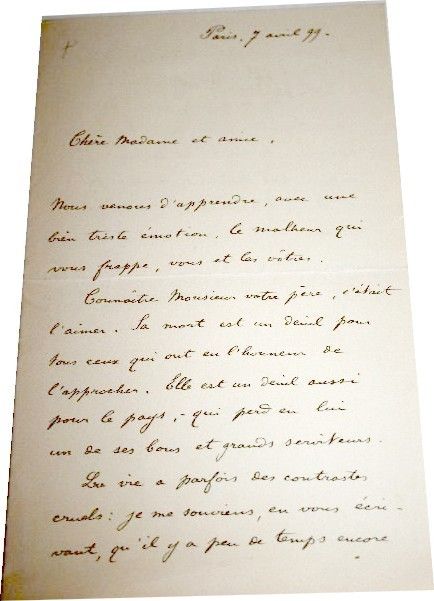 Paris, 7 avril 99.
Chère Madame et amie,
Nous venons d'apprendre, avec une
bien triste émotion, le malheur qui
vous frappe, vous et les vôtres.
Connaître Monsieur votre père, c'était
l'aimer. Sa mort est un deuil pour
tous ceux qui ont eu l'honneur de
l'approcher. Elle est un deuil aussi
pour le pays, - qui perd en lui
un de ses bons et grands serviteurs.
La vie a parfois des contrastes
cruels : je me souviens, en vous écri-
vant, qu'il y a peu de temps encore